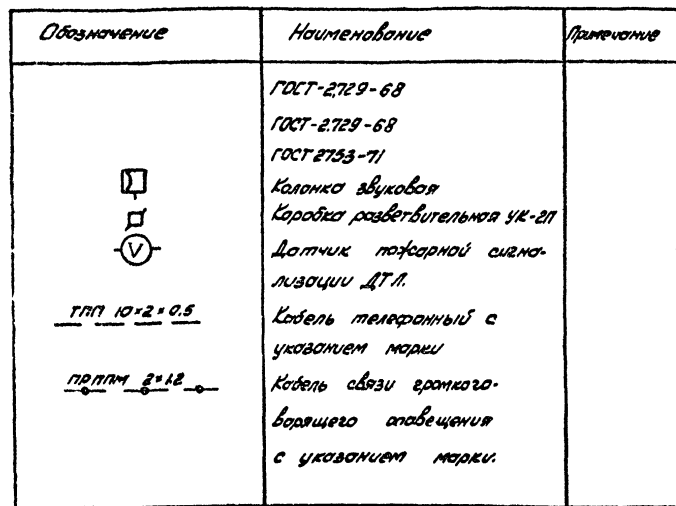 Обозначение Наименование Примечание
ГОСТ-2,729-68
ГОСТ-2.729-68
ГОСТ 2753-71
Колонка звуковая
Коробка разветвительная УК-2П
V Датчик пожарной сигна-
лизации ДТЛ.
ТПП 10×2×0.5 Кабель телефонный с
указанием марки
ПРППМ 2×1.2 Кабель связи громкого-
ворящего оповещения
с указанием марки.